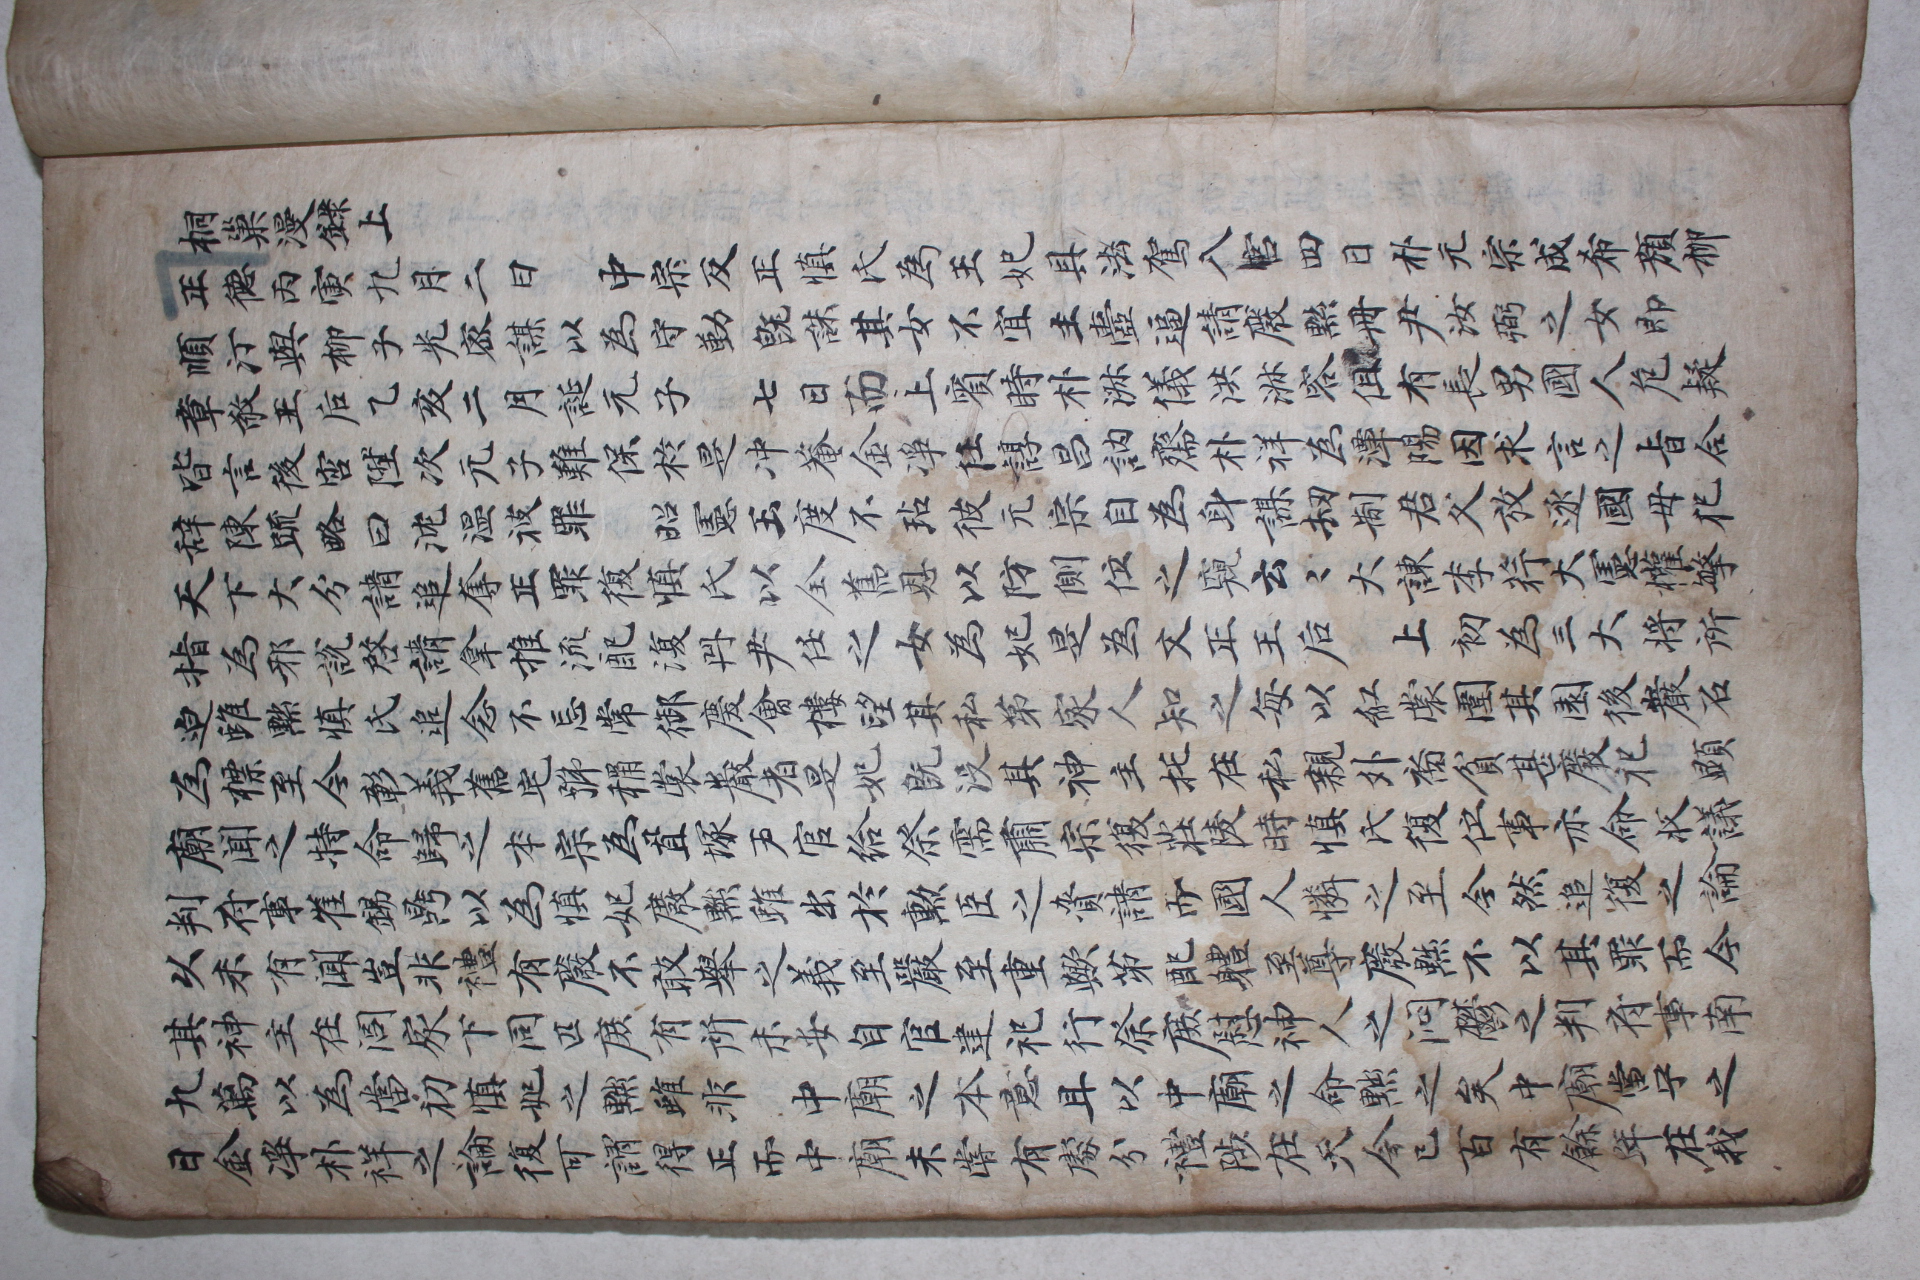 桐巢漫錄上
正德丙寅九月二日 中宗反正愼氏為王妃具法駕入宮四日朴元宗成希顔柳
順汀與柳子光密謀以為守勤旣誅其女不宜主壼逼請廢黜冊尹汝弼之女卽
章敬王后乙亥二月誕元子 七日而上賓時朴淑儀洪淑容但有長男國人危疑
皆言後宮陞次元子難保於是冲菴金淨任諄昌訥齋朴祥為潭陽因求言之旨合
辞陳疏略曰沈溫被罪 昭憲玉度不玷彼元宗自為身謀刼制君父放逐國母犯
天下大分請追奪正罪復愼氏以全舊恩以防側位之窺云々大諫李荇大憲權擎
指為邪說啓請拿推流配復冊尹任之女為妃是為文正王后 上初為三大将所
迫雖黜愼氏追念不忘常御慶會樓望其私第家人知之每以紅裳圍其園後巖石
為標至今彰義舊宅號稱裳巖者是妃旣沒其神主托在私親外裔貧甚廢祀 顯
廟聞之特命歸之本宗為置塚戶官給祭需肅宗復莊陵時愼氏復位事亦命收議
判府事崔錫鼎以為愼妃廢黜雖出於勲臣之賚請而國人憐之至今然追復之論
以未有聞豈非禮有廢不敢舉之義至嚴至重歟第配軆至尊廢黜不以其罪而今
其神主在閭家下同匹庶有所未安自官建祀行祭庶慰神人之悶鬱之判府事南
九萬以為當初愼妃之黜雖非 中廟之本意耳以中廟之命黜之矣中廟當宁之
日金淨朴祥之論復可謂得正而中廟未嘗有處分禮陟在天今已百有餘年在我